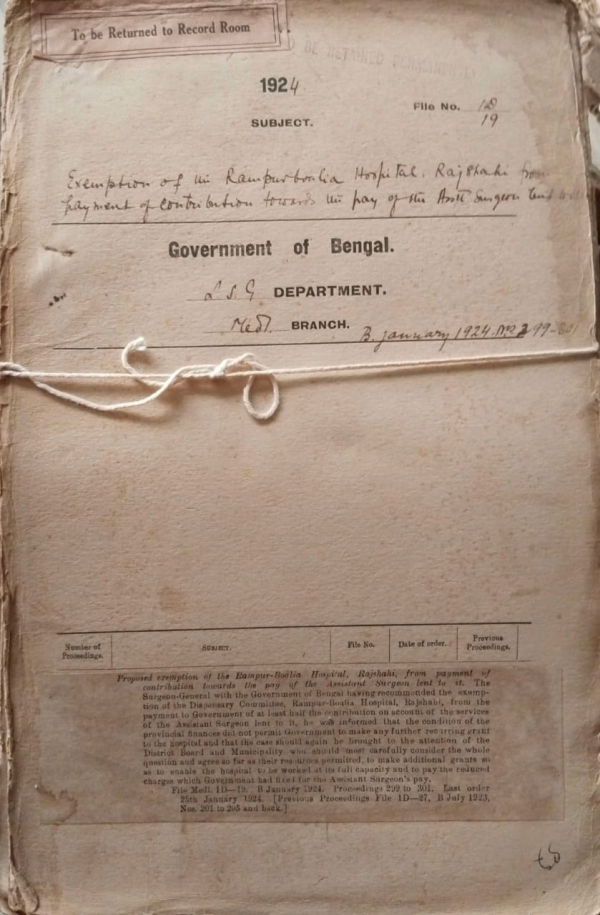 To be Returned to Record Room
BE RETAINED PERMANENTLY
1924
File No. 1D/19
SUBJECT.
Exemption of the Rampur boalia Hospital, Rajshahi from
payment of contribution towards the pay of the Asstt Surgeon lent
Government of Bengal.
L S G DEPARTMENT.
Medl. BRANCH.
B. January 1924. Nos 299-301
Number of Proceedings.
SUBJECT.
File No.
Date of order.
Previous Proceedings.
Proposed exemption of the Rampur-Boalia Hospital, Rajshahi, from payment of
contribution towards the pay of the Assistant Surgeon lent to it. The
Surgeon-General with the Government of Bengal having recommended the exemp-
tion of the Dispensary Committee, Rampur-Boalia Hospital, Rajshahi, from the
payment to Government of at least half the contribution on account of the services
of the Assistant Surgeon lent to it, he was informed that the condition of the
provincial finances did not permit Government to make any further recurring grant
to the hospital and that the case should again be brought to the attention of the
District Board and Municipality who should most carefully consider the whole
question and agree so far as their resources permitted, to make additional grants so
as to enable the hospital to be worked at its full capacity and to pay the reduced
charges which Government had fixed for the Assistant Surgeon's pay.
File Medl. 1D—19. B January 1924. Proceedings 299 to 301. Last order
25th January 1924. [Previous Proceedings File 1D—27, B July 1923,
Nos. 201 to 205 and back.]